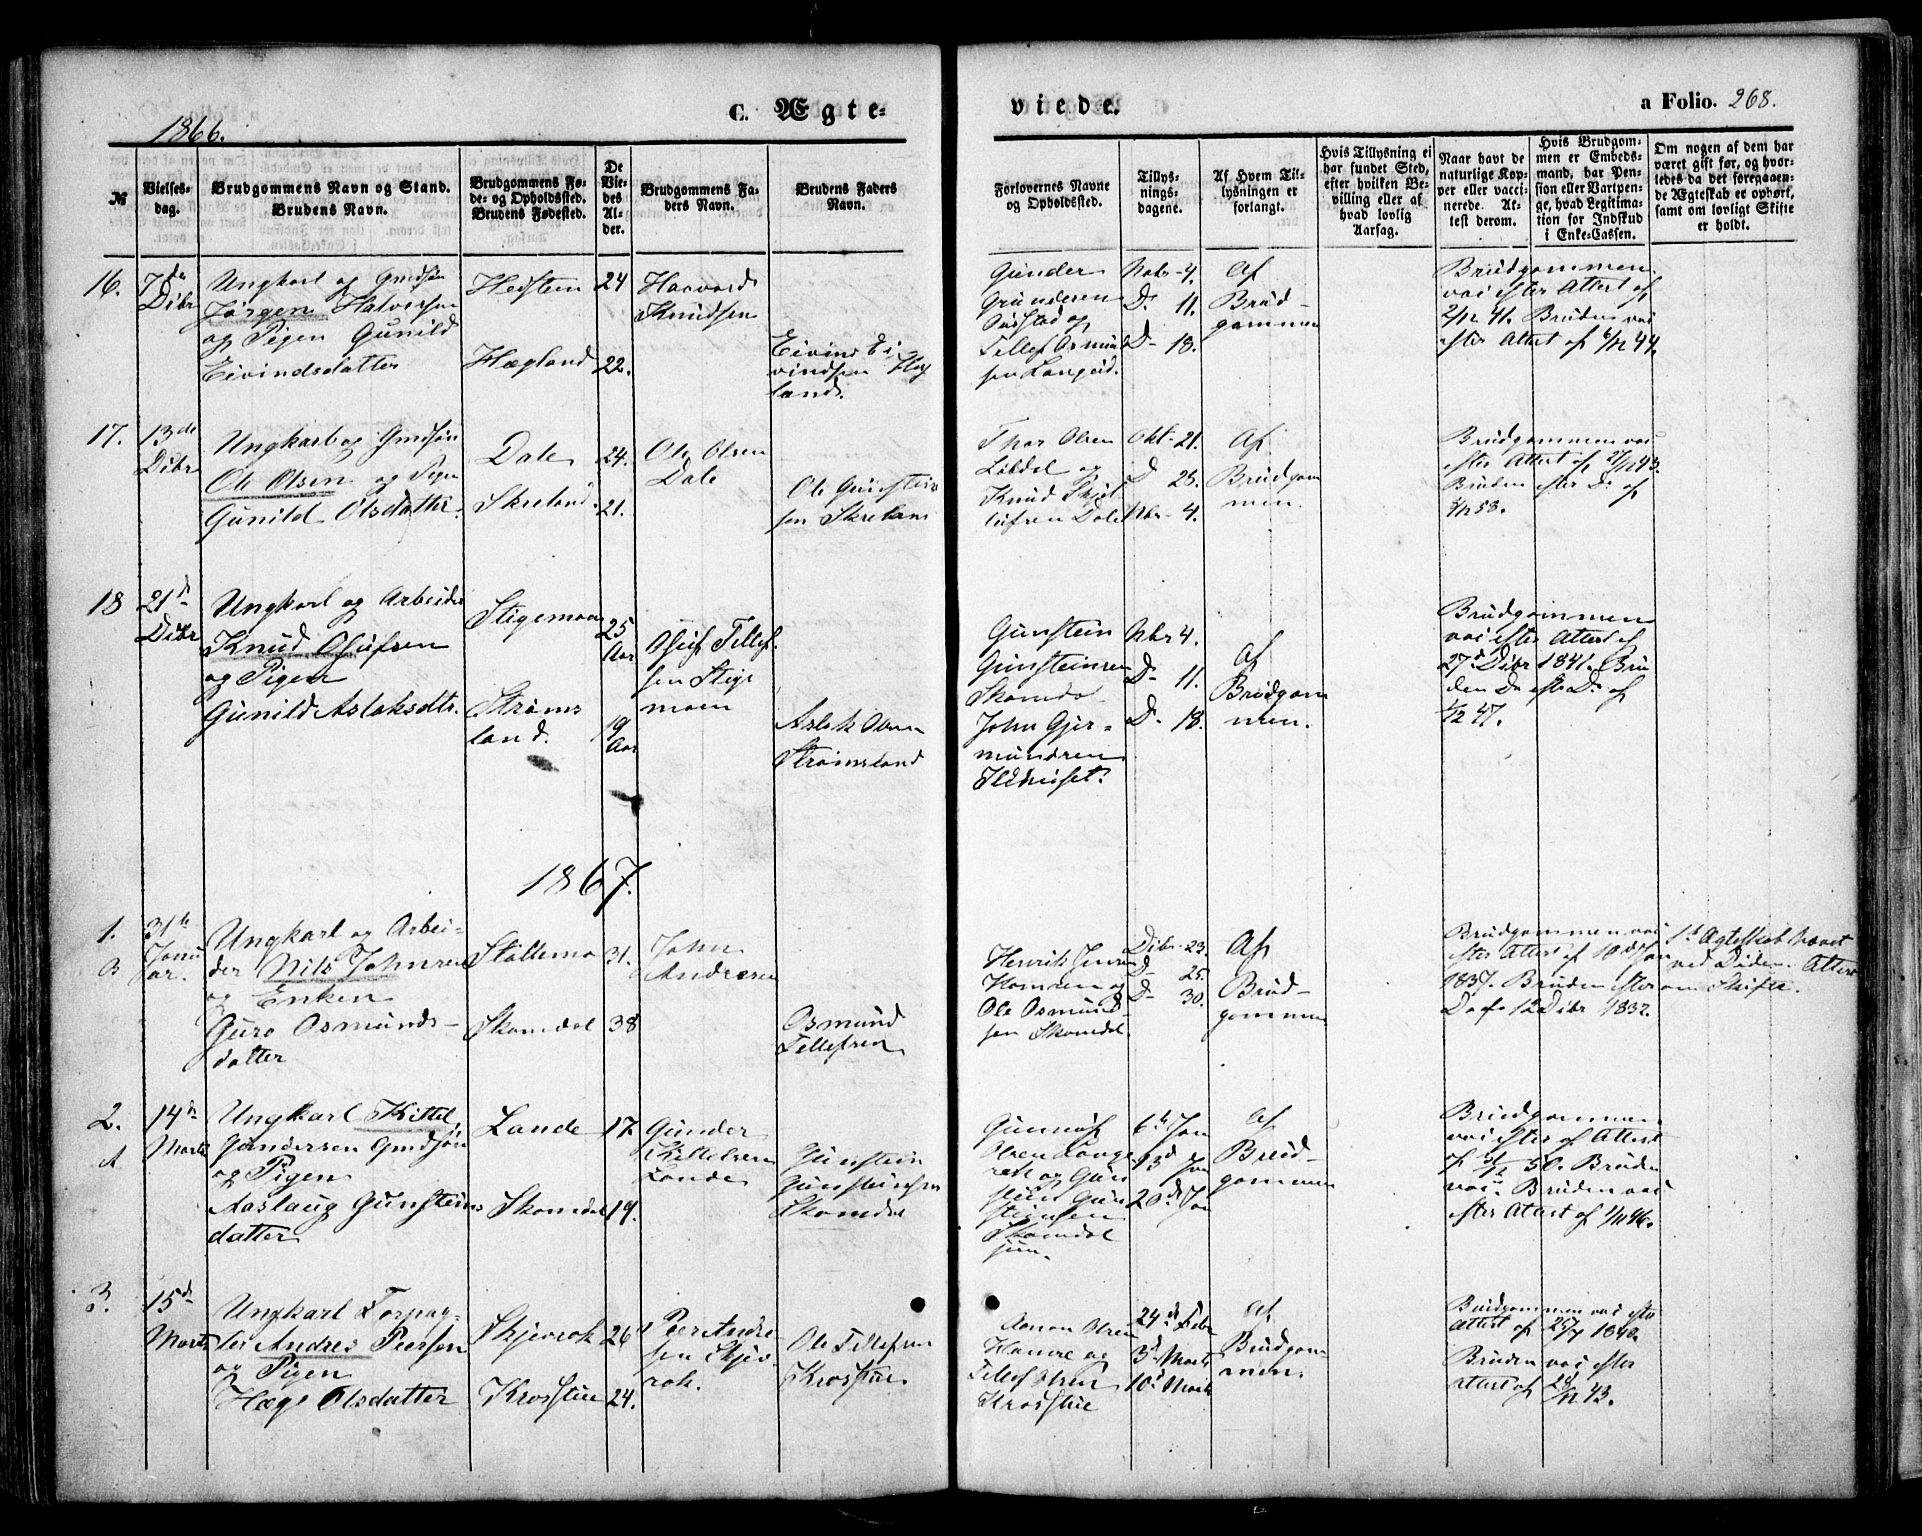 1866.
C. Ægte-
viede.
a Folio. 268.
№
Vielses-
dag.
Brudgommens Navn og Stand.
Brudens Navn.
Brudgommens Fø-
de- og Opholdssted.
Brudens Fødested.
De
Vie-
des
Al-
der.
Brudgommens Fa-
ders Navn.
Brudens Faders
Navn.
Forlovernes Navne
og Opholdssted.
Tillys-
nings-
dagene.
Af Hvem Til-
lysningen er
forlangt.
Hvis Tillysning ei
har fundet Sted,
efter hvilken Be-
villing eller af
hvad lovlig
Aarsag.
Naar havt de
naturlige Kop-
per eller vacci-
nerede. At-
test derom.
Hvis Brudgom-
men er Embeds-
mand, har Pen-
sion eller Vartpen-
ge, hvad Legitima-
tion for Indskud
i Enke-Cassen.
Om nogen af dem har
været gift før, og hvor-
ledes da det foregaaen-
de Ægteskab er ophørt,
samt om lovligt Skifte
er holdt.
16.
7de
Dibr
Ungkarl og Gmdsøn
Jørgen Halvorsen
og Pigen Gunild
Eivindsdatter
Heistein
Hægland
24
22.
Haavord
Knudsen
Eivind Ei
vindsen Hæg
land.
Gunder
Gundersen
og
Tellef Osmund
sen Langeid.
Nobr 4.
D. 11.
D- 18.
Af
Brud-
gommen
Brudgommen
var efter Attest af
2/12 41. Bruden var
efter Attest af 6/12 44.
17.
13de
Dibr
Ungkarl og Gmdsøn
Ole Olsen og Pigen
Gunild Olsdatter.
Dale
Skreland.
24.
21.
Ole Olsen
Dale
Ole Gunstein
sen Skreland
Thor Olsen
Løbdal og
Knud Skjøl
ufsen Dale
Okt- 21.
D 28.
Nbr- 4.
Af
Brudgom
men.
Brudgommen var
efter Attest af 21/12 43.
Bruden efter Do af
3/12 58.
18
21d
Dibr
Ungkarl og Arbeider
Knud Osufsen
og Pigen
Gunild Aslaksdtr.
Stigemoen
Strøms
land.
25
Aar
19
Aar
Osuf Tellef
sen Stige
moen
Aslak Olsen
Strømsland
Gunstein
Gunsteinsen
Skomdal
John Gjer-
mundsen
Ildhuset.
Nbr 4.
D- 11.
D- 18.
Af
Brudgom
men.
Brudgommen
var efter Attest af
27d Dibr 1841. Bru
den Do efter Do af
1/12 47.
1867.
1.
B
31te
Janu
ar.
Ungkarl og Arbei-
der Nils Johnsen
og Enken
Guro Osmunds-
datter
Støllemo
Skomdal
31.
38
John
Andersen
Osmund
Tellefsen
Henrik Jensen
Homen og
Ole Osmund-
sen Skomdal.
Dibr- 23.
D- 25.
D- 30.
Af
Brud-
gommen
Brudgommen var
efter Attest af 10d Jan
1837. Bruden efter
Do af 12 Dibr 1832.
1ste Ægteskab hævet
ved Døden. Attest
om Skifte.
2.
A
14d
Marts
Ungkarl Kittel
Gundersen Gmdsøn
og Pigen
Aaslaug Gunsteins
datter
Lande
Skomdal
17.
19.
Gunder
Kittelsen
Lande
Gunstein
Gunsteinsen
Skomdal
Gunnuf
Olsen Lauge
rak og Gun
stein Gun
steinsen
Skomdal
jun.
6te Jan
13d Jan
20de Jan
Af
Brud-
gommen
Brudgommen
var efter af Attest
af 31/12 50. Bruden
var Bruden var
efter Attest af 1/11 46.
3.
15d
Marts
Ungkarl Forpag-
ter Andres Peersen
og Pigen
Hæge Olsdatter
Skjevrok
Krosstue
26
24.
Peer Andre
sen Skjev
rok.
Ole Tellefsen
Krosstue
Aanon Olsen
Homre og
Tellef Olsen
Krosstue
24de Febr
3d Marts
10d Marts
Af
Brudgom-
men.
Brudgommen var efter
Attest af 25/7 1840.
Bruden var efter
Attest af 28/12 43.